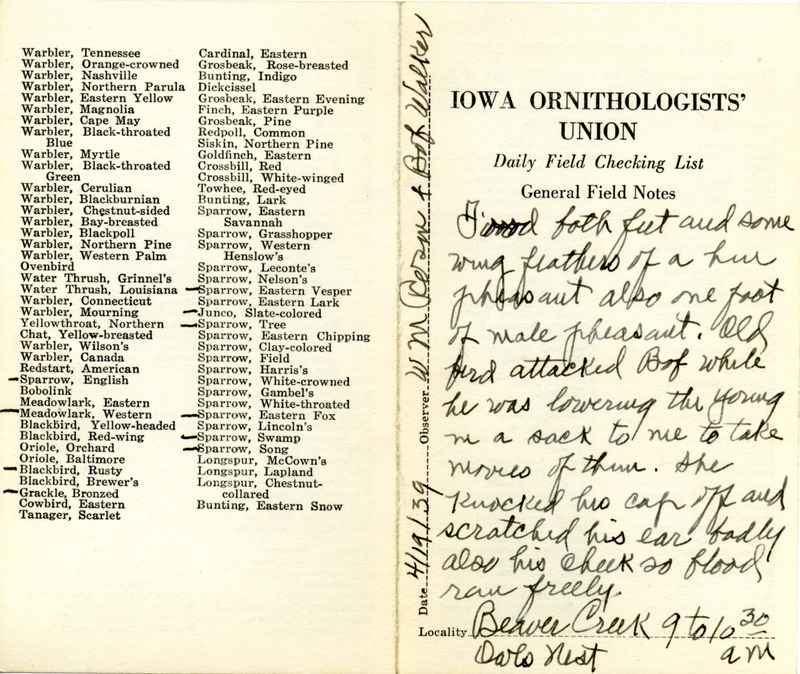 Warbler, Tennessee
Warbler, Orange-crowned
Warbler, Nashville
Warbler, Northern Parula
Warbler, Eastern Yellow
Warbler, Magnolia
Warbler, Cape May
Warbler, Black-throated
Blue
Warbler, Myrtle
Warbler, Black-throated
Green
Warbler, Cerulian
Warbler, Blackburnian
Warbler, Chestnut-sided
Warbler, Bay-breasted
Warbler, Blackpoll
Warbler, Northern Pine
Warbler, Western Palm
Ovenbird
Water Thrush, Grinnel's
Water Thrush, Louisiana
Warbler, Connecticut
Warbler, Mourning
Yellowthroat, Northern
Chat, Yellow-breasted
Warbler, Wilson's
Warbler, Canada
Redstart, American
Sparrow, English
Bobolink
Meadowlark, Eastern
Meadowlark, Western
Blackbird, Yellow-headed
Blackbird, Red-wing
Oriole, Orchard
Oriole, Baltimore
Blackbird, Rusty
Blackbird, Brewer's
Grackle, Bronzed
Cowbird, Eastern
Tanager, Scarlet
Cardinal, Eastern
Grosbeak, Rose-breasted
Bunting, Indigo
Dickcissel
Grosbeak, Eastern Evening
Finch, Eastern Purple
Grosbeak, Pine
Redpoll, Common
Siskin, Northern Pine
Goldfinch, Eastern
Crossbill, Red
Crossbill, White-winged
Towhee, Red-eyed
Bunting, Lark
Sparrow, Eastern
Savannah
Sparrow, Grasshopper
Sparrow, Western
Henslow's
Sparrow, Leconte's
Sparrow, Nelson's
Sparrow, Eastern Vesper
Sparrow, Eastern Lark
Junco, Slate-colored
Sparrow, Tree
Sparrow, Eastern Chipping
Sparrow, Clay-colored
Sparrow, Field
Sparrow, Harris's
Sparrow, White-crowned
Sparrow, Gambel's
Sparrow, White-throated
Sparrow, Eastern Fox
Sparrow, Lincoln's
Sparrow, Swamp
Sparrow, Song
Longspur, McCown's
Longspur, Lapland
Longspur, Chestnut-
collared
Bunting, Eastern Snow
Date 4/19/39 Observer W M Rosen & Bob Walker
IOWA ORNITHOLOGISTS'
UNION
Daily Field Checking List
General Field Notes
Found both feet and some
wing feathers of a hen
pheasant also one foot
of male pheasant. Old
bird attacked Bob while
he was lowering the young
in a sack to me to take
movies of them. She
knocked his cap off and
scratched his ear badly
also his cheek so blood
ran freely.
Locality Beaver Creek 9 to 10 30
Owls Nest a m